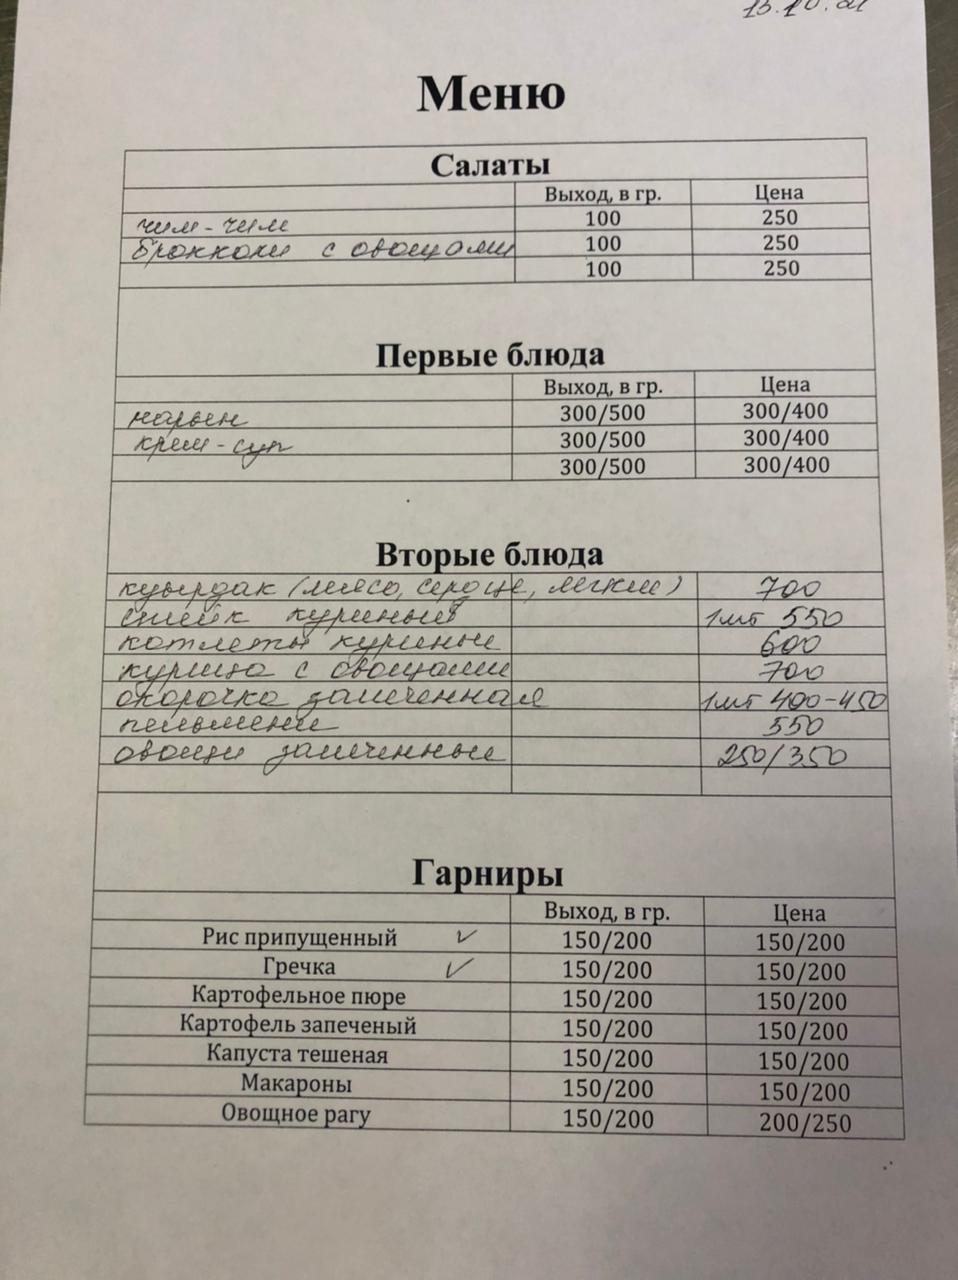 Меню
Салаты
Выход, в гр. Цена
чим-чим 100 250
брокколи с овощами 100 250
100 250
Первые блюда
Выход, в гр. Цена
нарын 300/500 300/400
крем-суп 300/500 300/400
300/500 300/400
Вторые блюда
куырдак (мясо, сердце, легкие) 700
куриный 1шт 550
котлеты куриные 600
курица с овощами 700
окорочка запеченная 1шт 400-450
пельмени 550
овощи запеченные 250/350
Гарниры
Выход, в гр. Цена
Рис припущенный ✓ 150/200 150/200
Гречка ✓ 150/200 150/200
Картофельное пюре 150/200 150/200
Картофель запеченый 150/200 150/200
Капуста тешеная 150/200 150/200
Макароны 150/200 150/200
Овощное рагу 150/200 200/250